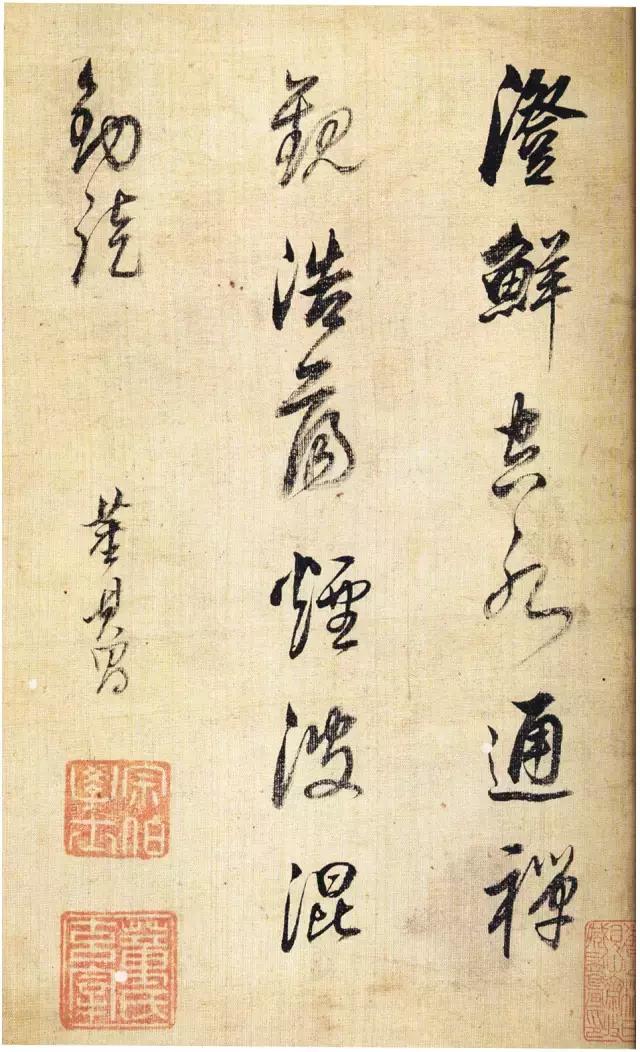 澄鮮空水通禪
觀浩蕩煙波混
釣徒
董其昌
宗伯學士
董氏玄宰